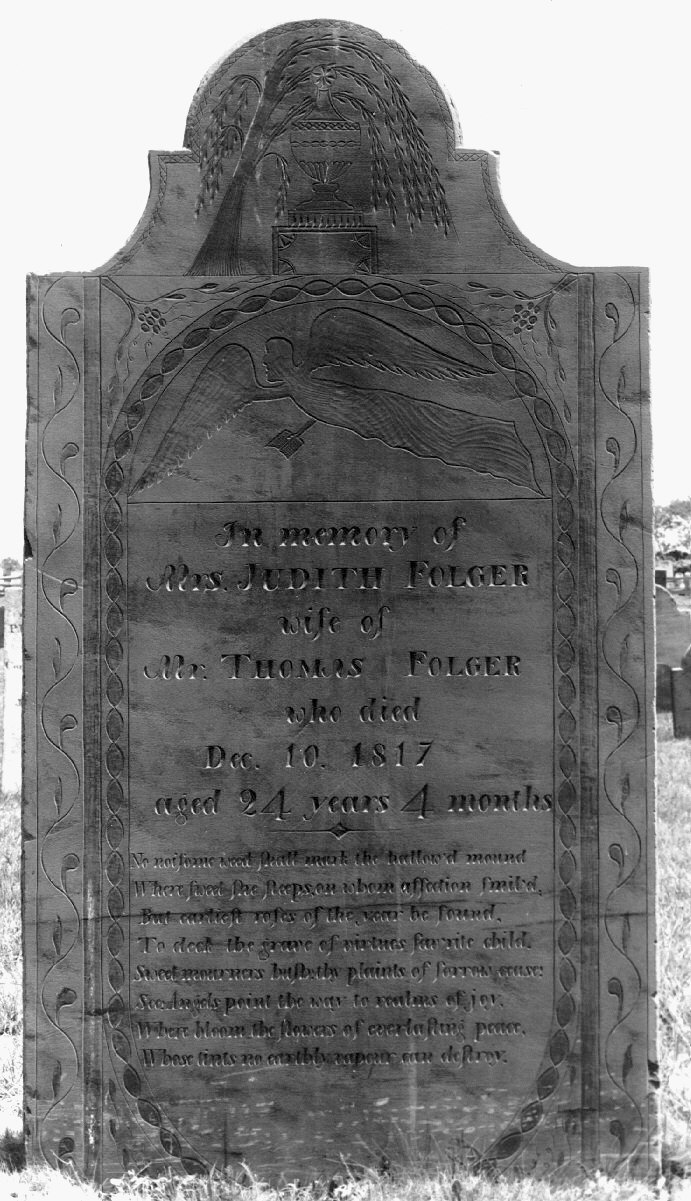 In memory of
Mrs. JUDITH FOLGER
wife of
Mr. THOMAS FOLGER
who died
Dec. 10. 1817
aged 24 years 4 months
No noiſome weed ſhall mark the hallow'd mound
Where ſweet ſhe ſleeps, on whom affection ſmil'd,
But earlieſt roſes of the year be found,
To deck the grave of virtues fav'rite child.
Sweet mourners huſh, thy plaints of ſorrow ceaſe:
See Angels point the way to realms of joy,
Where bloom the flowers of everlaſting peace,
Whose tints no earthly vapour can deſtroy.